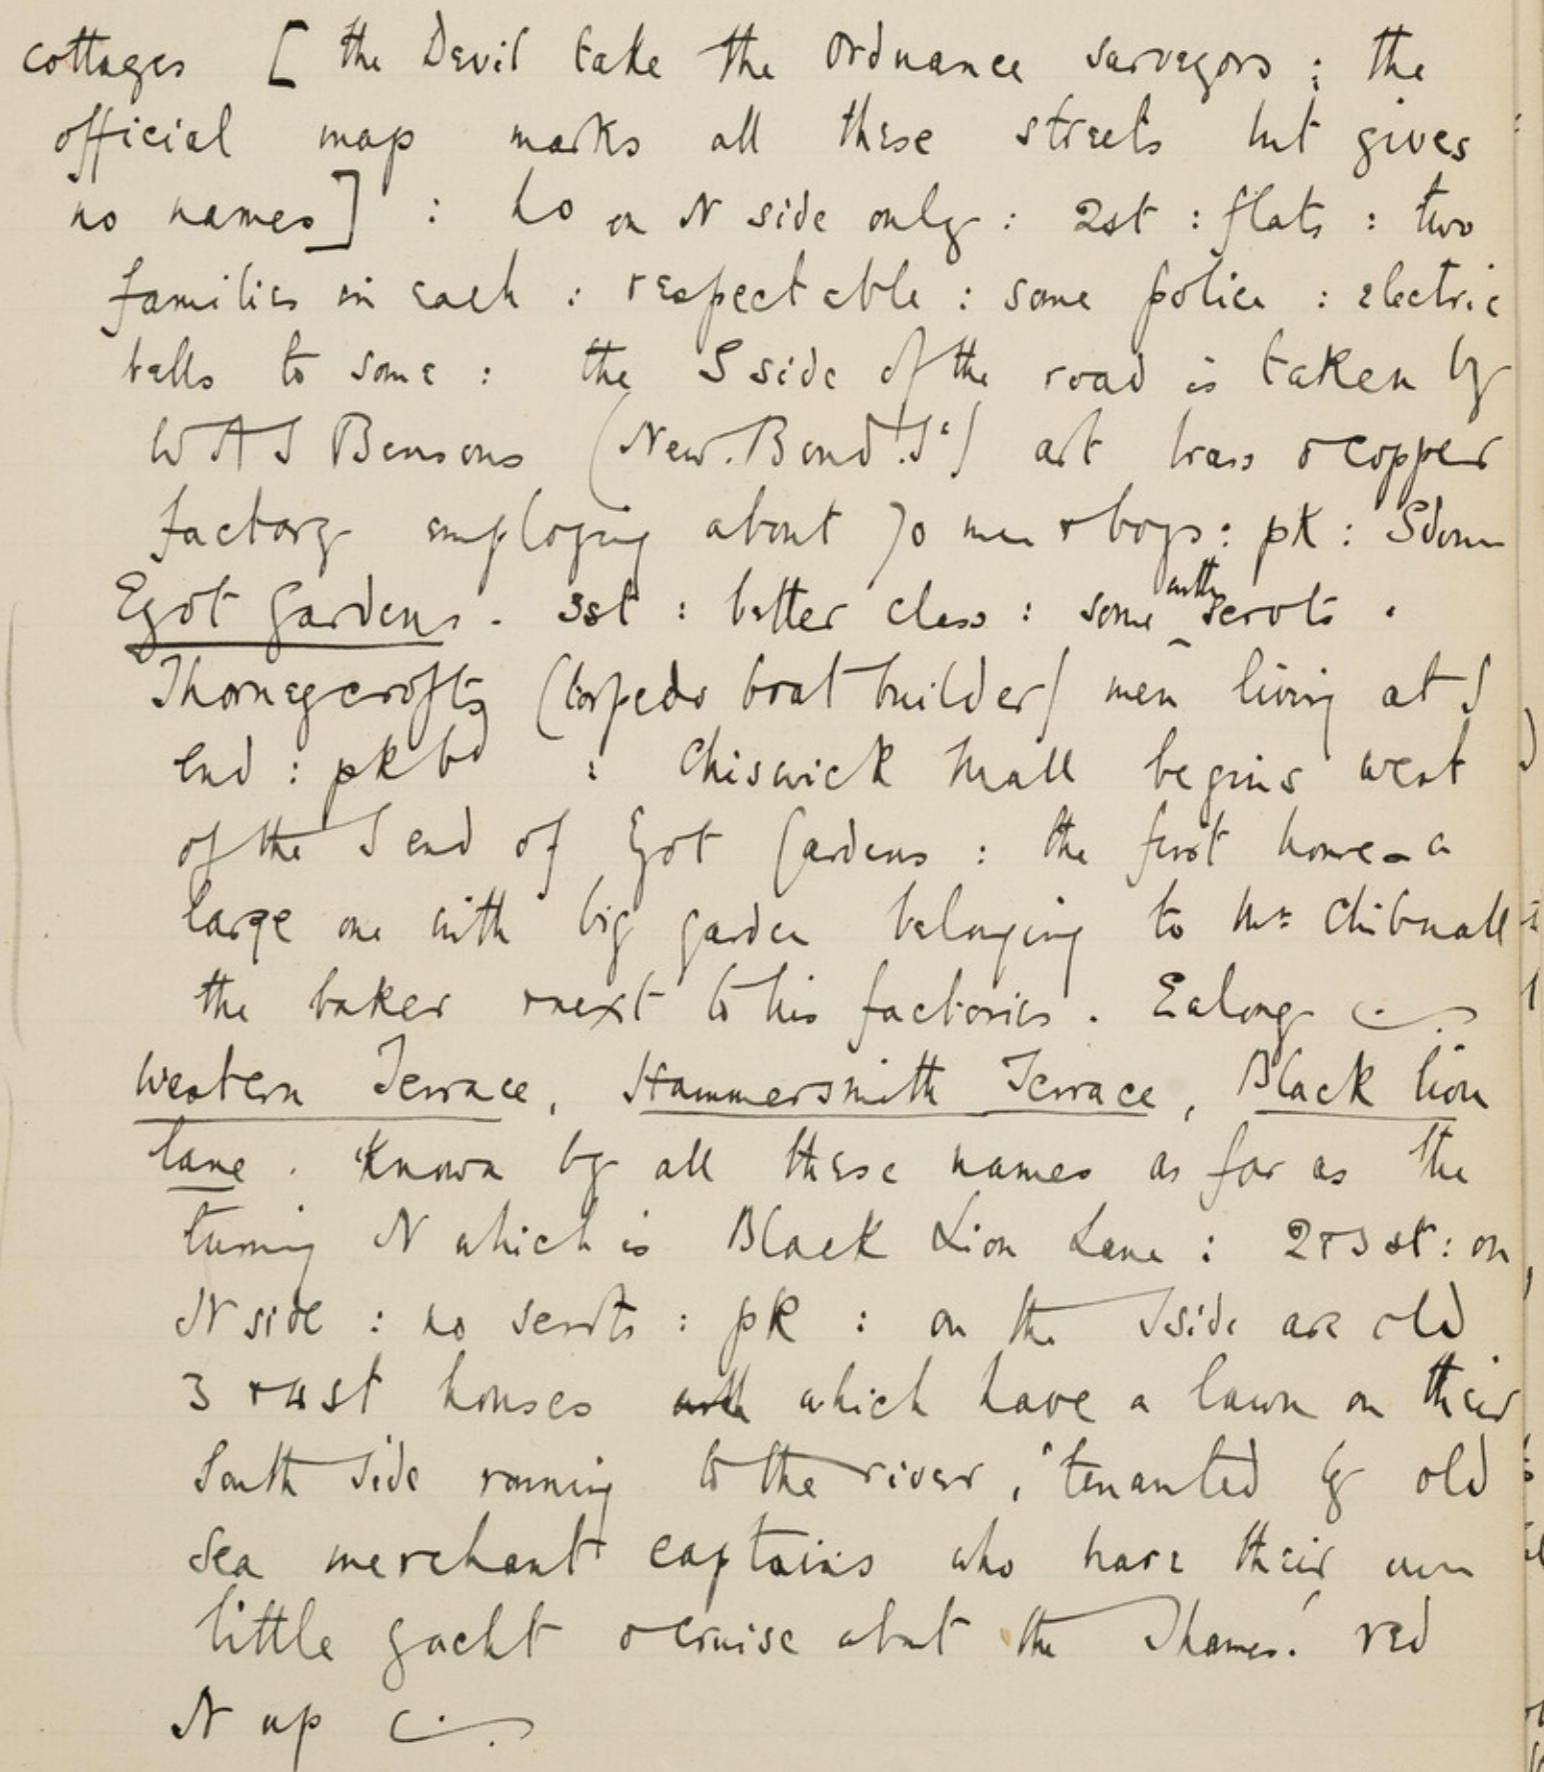 cottages [ the Devil take the Ordnance surveyors : the
official map marks all these streets but gives
no names ] : ho on N side only : 2st : flats : two
families in each : respectable : some police : electric
bells to some : the S side of the road is taken by
W A S Bensons (New. Bond. St) art brass & copper
factory employing about 70 men & boys : pk : S down
Eyot Gardens . 3st : better class : some with servts .
Thorneycrofts (torpedo boat builder) men living at S
end : pk bd : Chiswick Mall begins west
of the S end of Eyot Gardens : the first house - a
large one with big garden belonging to Mr Chibnall
the baker & next to his factories . E along
Western Terrace, Hammersmith Terrace, Black Lion
Lane . Known by all these names as far as the
turning N which is Black Lion Lane : 2 & 3 st : on
N side : no servts : pk : on the S side are old
3 & 4 st houses with which have a lawn on their
South side running to the river, 'tenanted by old
sea merchant captains who have their own
little yacht & cruise about the Thames.' red
N up